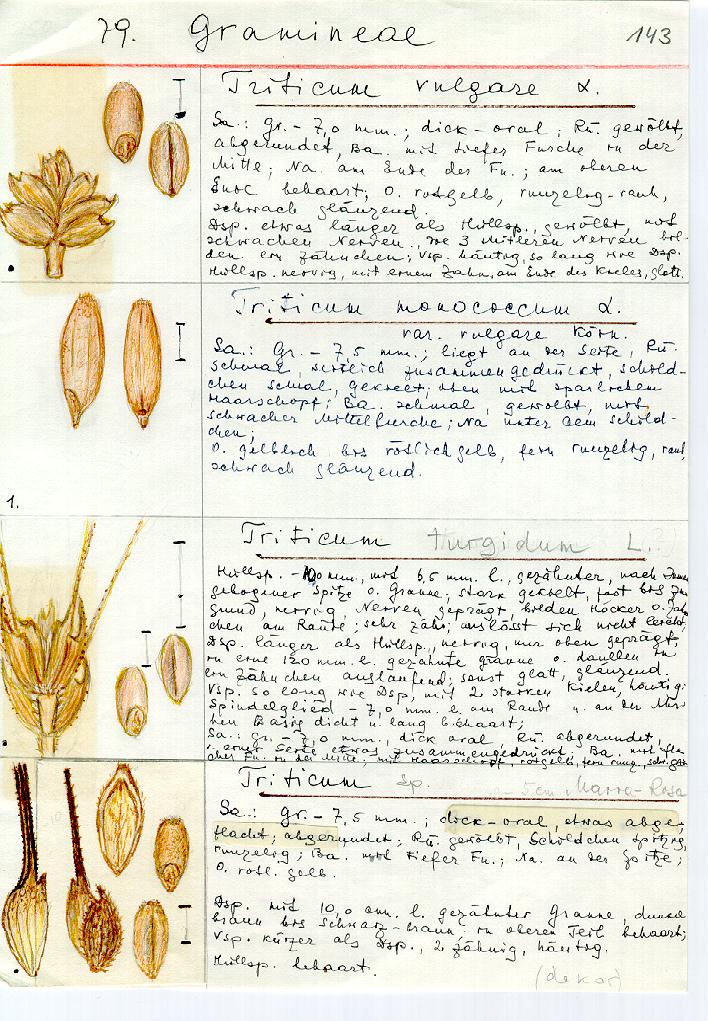 79. Gramineae 143
Triticum vulgare L.
Sa.: Gr. - 7,0 mm.; dick-oval; Rü. gewölbt,
abgerundet, Ba. mit tiefer Furche in der
Mitte; Na. am Ende der Fu.; am oberen
Ende behaart; O. rotgelb, runzelig-rauh,
schwach glänzend.
Dsp. etwas länger als Hüllsp., gewölbt, mit
schwachen Nerven, die 3 mittleren Nerven bil-
den ein Zähnchen; Vsp. häutig, so lang wie Dsp.
Hüllsp. nervig, mit einem Zahn am Ende des Kieles, glatt.
Triticum monococcum L.
var. vulgare Körn.
Sa.: Gr. - 7,5 mm.; liegt an der Seite, Rü.
schmal, seitlich zusammengedrückt, Schild-
chen schmal, gekielt; oben mit spärlichem
Haarschopf; Ba. schmal, gewölbt, mit
schwacher Mittelfurche; Na unter dem Schild-
chen;
O. gelblich bis rötlichgelb, fein runzelig, rauh,
schwach glänzend.
1.
Triticum turgidum L.
Hüllsp. - 10,0 mm., mit 6,5 mm. l., gezähnter, nach
gebogener Spitze o. Granne, stark gekielt, fast bis zum
Grund, nervig, Nerven geprägt, bilden Höcker o. Zähn-
chen am Rande; sehr zäh,
Dsp. länger als Hüllsp., nervig, nur oben geprägt,
in eine 120 mm. l. gezähnte Granne o. daneben in
ein Zähnchen auslaufend; sonst glatt, glänzend.
Vsp. so lang wie Dsp, mit 2 starken Kielen, häutig;
Spindelglied - 7,0 mm. l. am Rande u. an der
Basis dicht u. lang behaart;
Sa.: Gr. - 7,0 mm., dick oval, Rü. abgerundet,
einer Seite etwas zusammengedrückt, Ba. mit fla-
cher Fu. in der Mitte; mit Haarschopf, rotgelb, fein runz.
Triticum sp. 5 cm Marra-Rosa
Sa.: Gr. - 7,5 mm.; dick-oval, etwas abge-
flacht; abgerundet; Rü. gewölbt, Schildchen spitzig,
runzelig; Ba. mit tiefer Fu.; Na. an der Spitze;
O. rötl. gelb.
Dsp. mit 10,0 cm. l. gezähnter Granne, dunkel
braun bis schwarz-braun, im oberen Teil behaart;
Vsp. kürzer als Dsp., 2 zähnig, häutig.
Hüllsp. behaart.
(dekor)